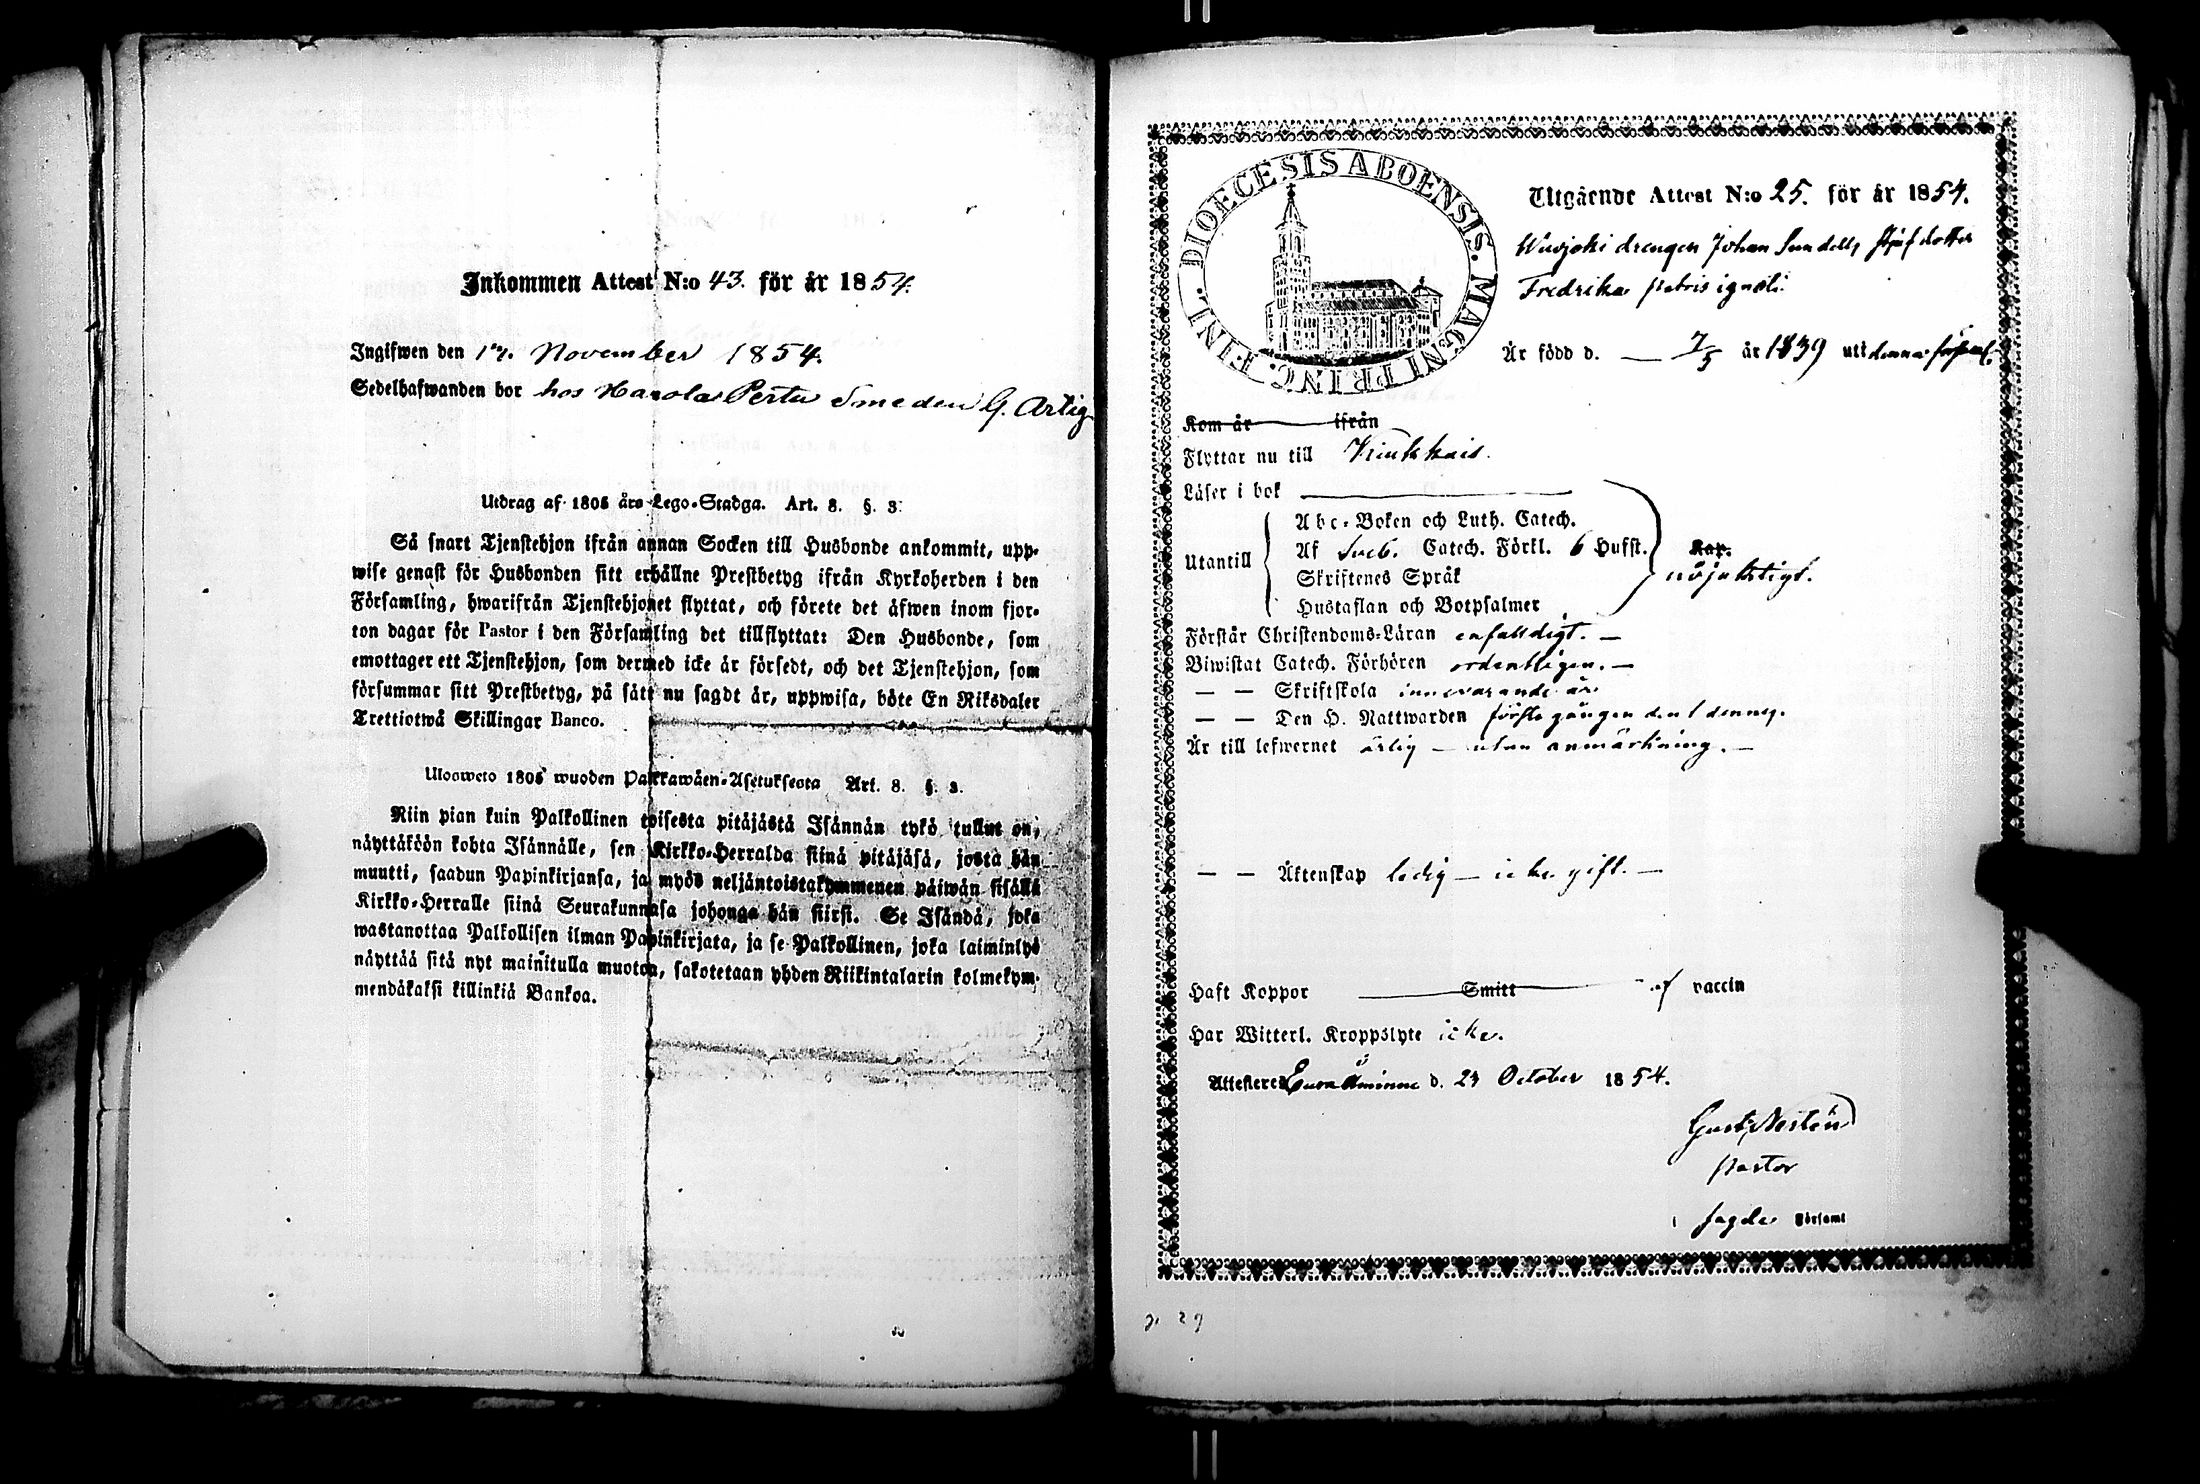 Inkommen Attest N:o 43. för år 1854.
Ingifwen den 17. November 1854.
Sedelhafwanden bor hos Harola Perttu Smeden G. Artig
Utdrag af 1805 års Lego-Stadga. Art. 8. §. 3.
Så snart Tjenstehjon ifrån annan Socken till Husbonde ankommit, upp-
wise genast för Husbonden sitt erhållne Prestbetyg ifrån Kyrkoherden i den
Församling, hwarifrån Tjenstehjonet flyttat, och förete det äfwen inom fjor-
ton dagar för Pastor i den Församling det tillflyttat: Den Husbonde, som
emottager ett Tjenstehjon, som dermed icke är försedt, och det Tjenstehjon, som
försummar sitt Prestbetyg, på sätt nu sagdt är, uppwisa, böte En Riksdaler
Trettiotwå Skillingar Banco.
Ulosweto 1805 wuoden Palkkawäen-Asetuksesta Art. 8. §. 3.
Niin pian kuin Palkollinen toisesta pitäjästä Isännän tykö tullut on,
näyttäköön kohta Isännälle, sen Kirkko-Herralda siinä pitäjäsä, josta hän
muutti, saadun Papinkirjansa, ja myös neljäntoistakymmenen päiwän sisällä
Kirkko-Herralle siinä Seurakunnasa johonga hän siirsi. Se Isändä, joka
wastanottaa Palkollisen ilman Papinkirjata, ja se Palkollinen, joka laiminlyö
näyttää sitä nyt mainitulla muoton, sakotetaan yhden Riikintalarin kolmekym-
mendäkaksi killinkiä Bankoa.
DIOECESIS ABOENSIS. MAGNI PRINC. FINL.
Utgående Attest N:o 25. för år 1854.
drengen Johan Sundells styfdotter
Fredrika patris ignoti
Är född d. — 7/5 år 1839 uti denna
Kom år ifrån
Flyttar nu till Kiukkais.
Läser i bok
Utantill
Abc-Boken och Luth. Catech.
Af Sveb. Catech. Förkl. 6 Hufst. Kap.
Skriftenes Språk nöjaktigt.
Hustaflan och Botpsalmer
Förstår Christendoms-Läran enfalldigt. —
Biwistat Catech. Förhören ordentligen. —
— — Skriftskola innevarande år
— — Den H. Nattwarden första gången den 1 dennes.
Är till lefwernet ärlig — utan anmärkning. —
— — Äktenskap ledig — icke gift. —
Haft Koppor Smitt af vaccin
Har Witterl. Kroppslyte icke.
Attesteres Eura Åminne d. 23 October 1854.
Gust. Nestén
Pastor
i sagde Församl